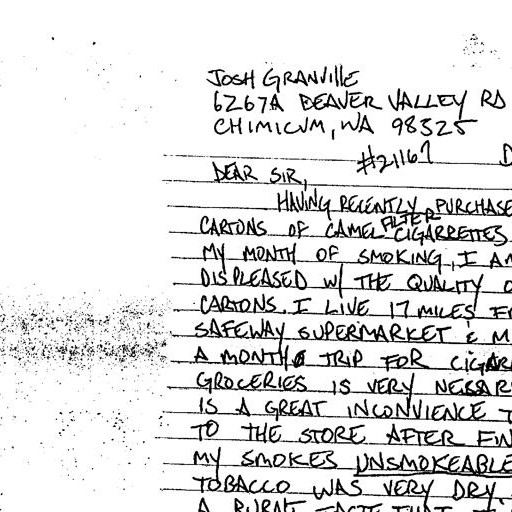 JOSH GRANVILLE
6267A BEAVER VALLEY RD
CHIMICUM, WA 98325
#21167 D
DEAR SIR,
HAVING RECENTLY PURCHASE
FILTER
CARTONS OF CAMEL CIGARRETTES
MY MONTH OF SMOKING, I AM
DISPLEASED W/ THE QUALITY O
CARTONS. I LIVE 17 MILES F
SAFEWAY SUPERMARKET & M
A MONTH TRIP FOR CIGAR
GROCERIES IS VERY NESSAR
IS A GREAT INCONVIENCE T
TO THE STORE AFTER FIN
MY SMOKES UNSMOKEABLE
TOBACCO WAS VERY DRY.
A BURNT TASTE THAT